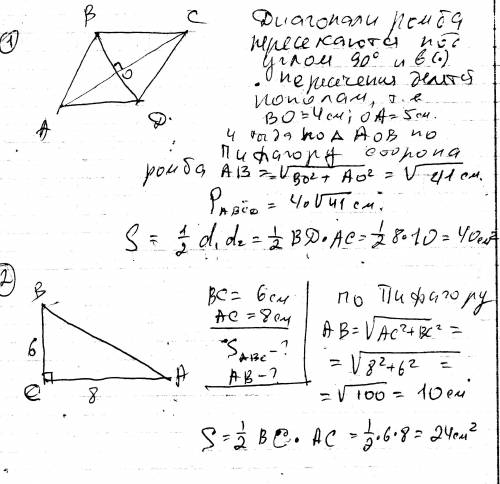 1
B
C
O
A
D
Диагонали ромба
пересекаются под
углом 90° и в (·)
пересечения делятся
пополам, т.е
BO=4см; OA=5см.
и тогда по Δ AOB по
Пифагору сторона
ромба AB = √BO²+AO² = √41 см.
P ABCD = 4·√41 см.
S = 1/2 d₁ d₂ = 1/2 BD·AC = 1/2 8·10 = 40см²
2
B
6
C
8
A
BC = 6см
AC = 8см
S ABC - ?
AB - ?
по Пифагору
AB = √AC²+BC² =
= √8²+6² =
= √100 = 10см
S = 1/2 BC · AC = 1/2·6·8 = 24см²